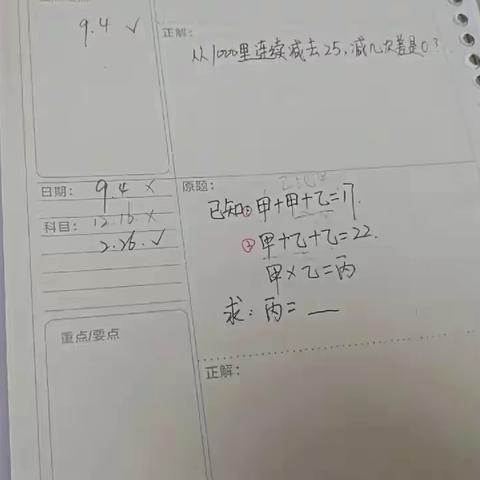 9.4 ✓
正解:
从1000里连续减去25,减几次差是0?
日期: 9.4 ×
科目: 12.16 ×
2.26. ✓
原题:
已知:①甲+甲+乙=17.
②甲+乙+乙=22.
甲×乙=丙
求:丙=__
重点/要点
正解: